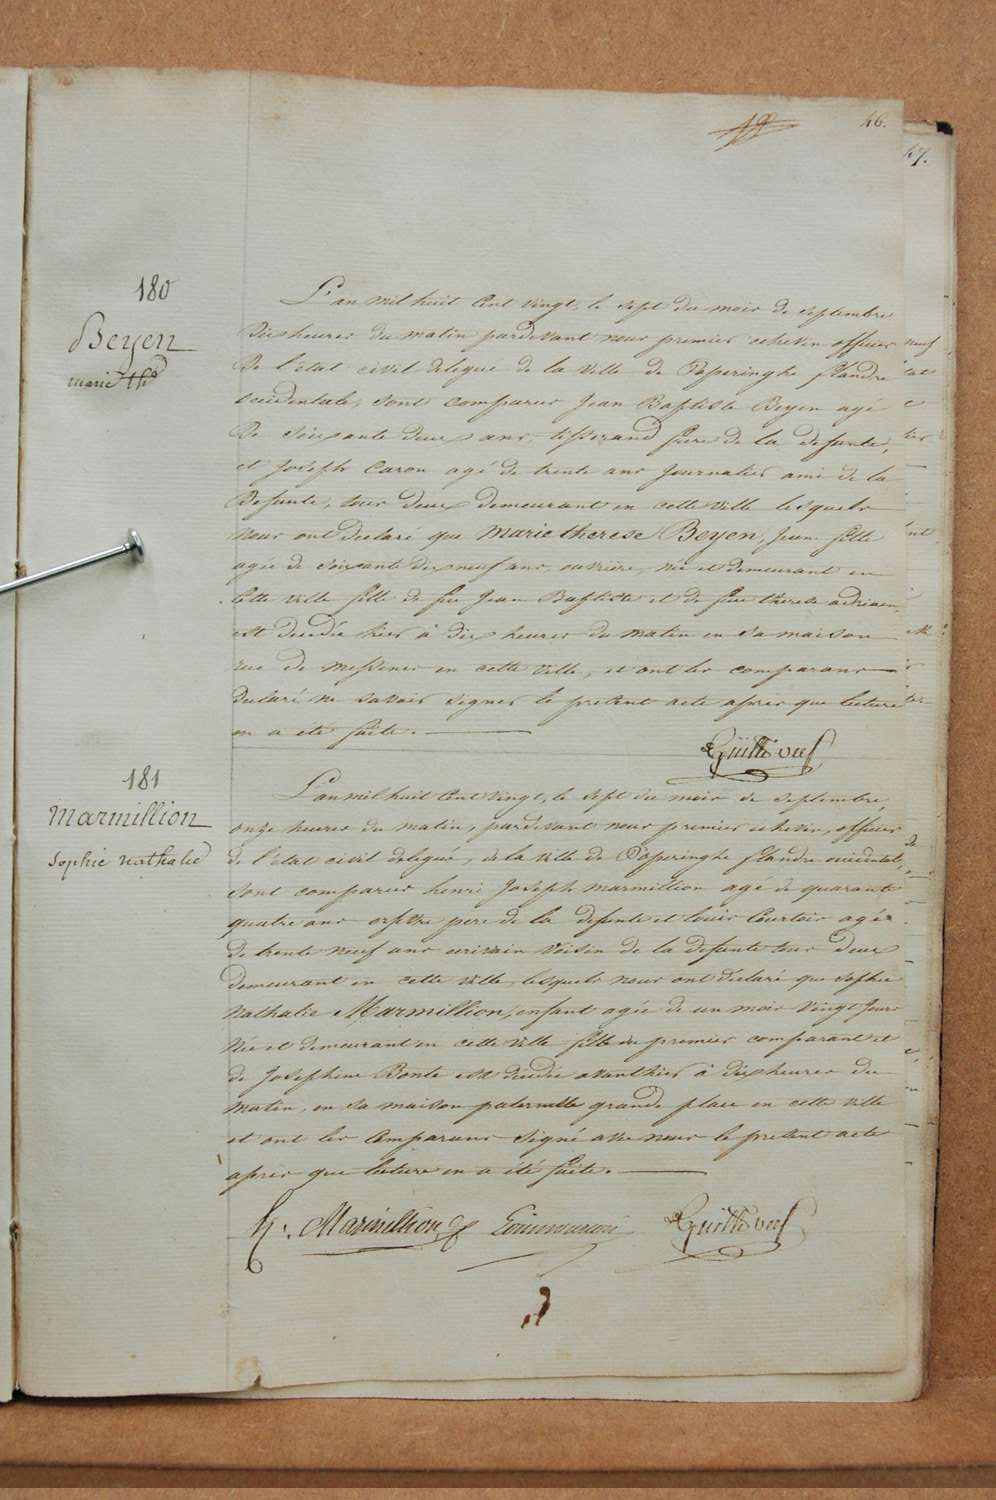 46.
47.
180
Beyen
marie thé
L'an mil huit cent vingt, le sept du mois de septembre
dix heures du matin pardevant nous premier echevin officier
de l'état civil delegué de la ville de Poperinghe flandre
occidentale, sont comparus Jean Baptiste Beyen agé
de soixante deux ans, tisserand frere de la defunte,
et Joseph Caron agé de trente ans journalier ami de la
defunte, tous deux demeurant en cette ville lesquels
nous ont declaré que Marie therese Beyen, jeune fille
agée de soixante dix neuf ans, ouvrière, née et demeurant en
cette ville fille de feu Jean Baptiste et de feue thérese adriaen,
est decedée hier à dix heures du matin en sa maison
rue de messines en cette ville, et ont les comparans
declaré ne savoir signer le present acte apres que lecture
en a été faite.
181
Marmillion
sophie nathalie
L'an mil huit cent vingt, le sept du mois de septembre,
onze heures du matin, pardevant nous premier echevin, officier
de l'état civil delegué, de la ville de Poperinghe flandre occidentale,
sont comparus henri Joseph marmillion agé de quarante
quatre ans orfevre pere de la defunte et louis Courtois agé
de trente neuf ans ecrivain voisin de la defunte tous deux
demeurant en cette ville, lesquels nous ont déclaré que sophie
nathalie Marmillion, enfant agée de un mois vingt jours
née et demeurant en cette ville fille du premier comparant et
de Josephine Bonte est decedée avant hier à dix heures du
matin, en sa maison paternelle grande place en cette ville
et ont les comparans signé avec nous le present acte
apres que lecture en a été faite.
h. Marmillion